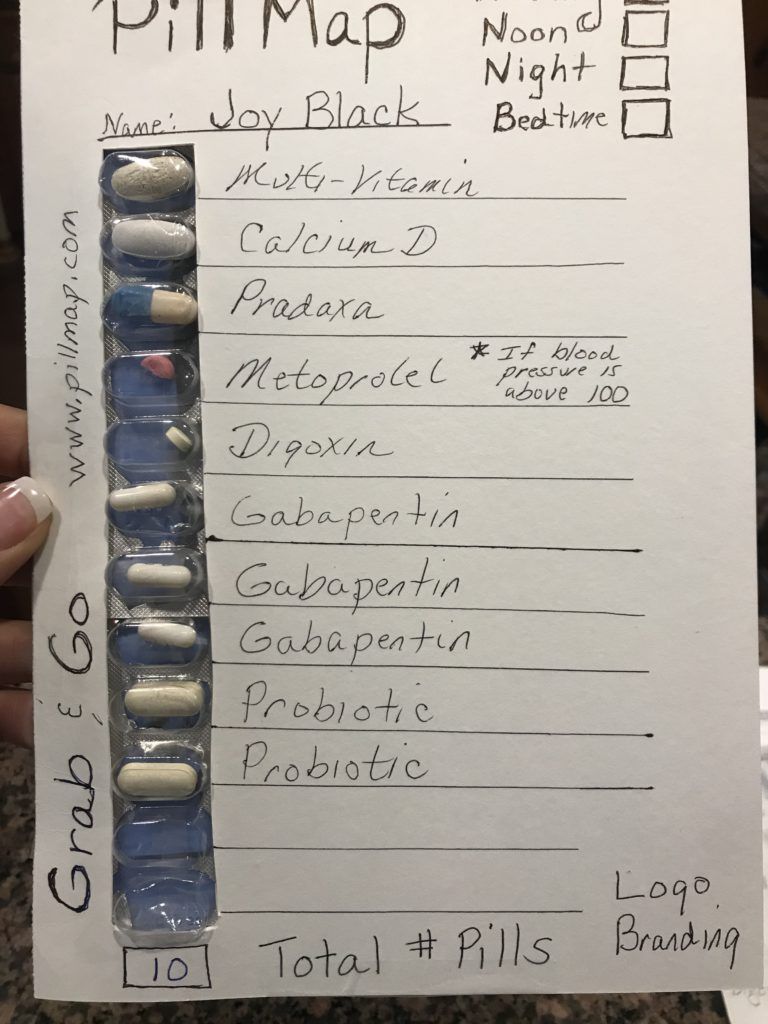 Pill Map
Noon
Night
Bedtime
Name: Joy Black
Multi-Vitamin
Calcium D
Pradaxa
Metoprolel * If blood
pressure is
above 100
Digoxin
Gabapentin
Gabapentin
Gabapentin
Probiotic
Probiotic
10 Total # Pills
Logo
Branding
www.pillmap.com
Grab & Go